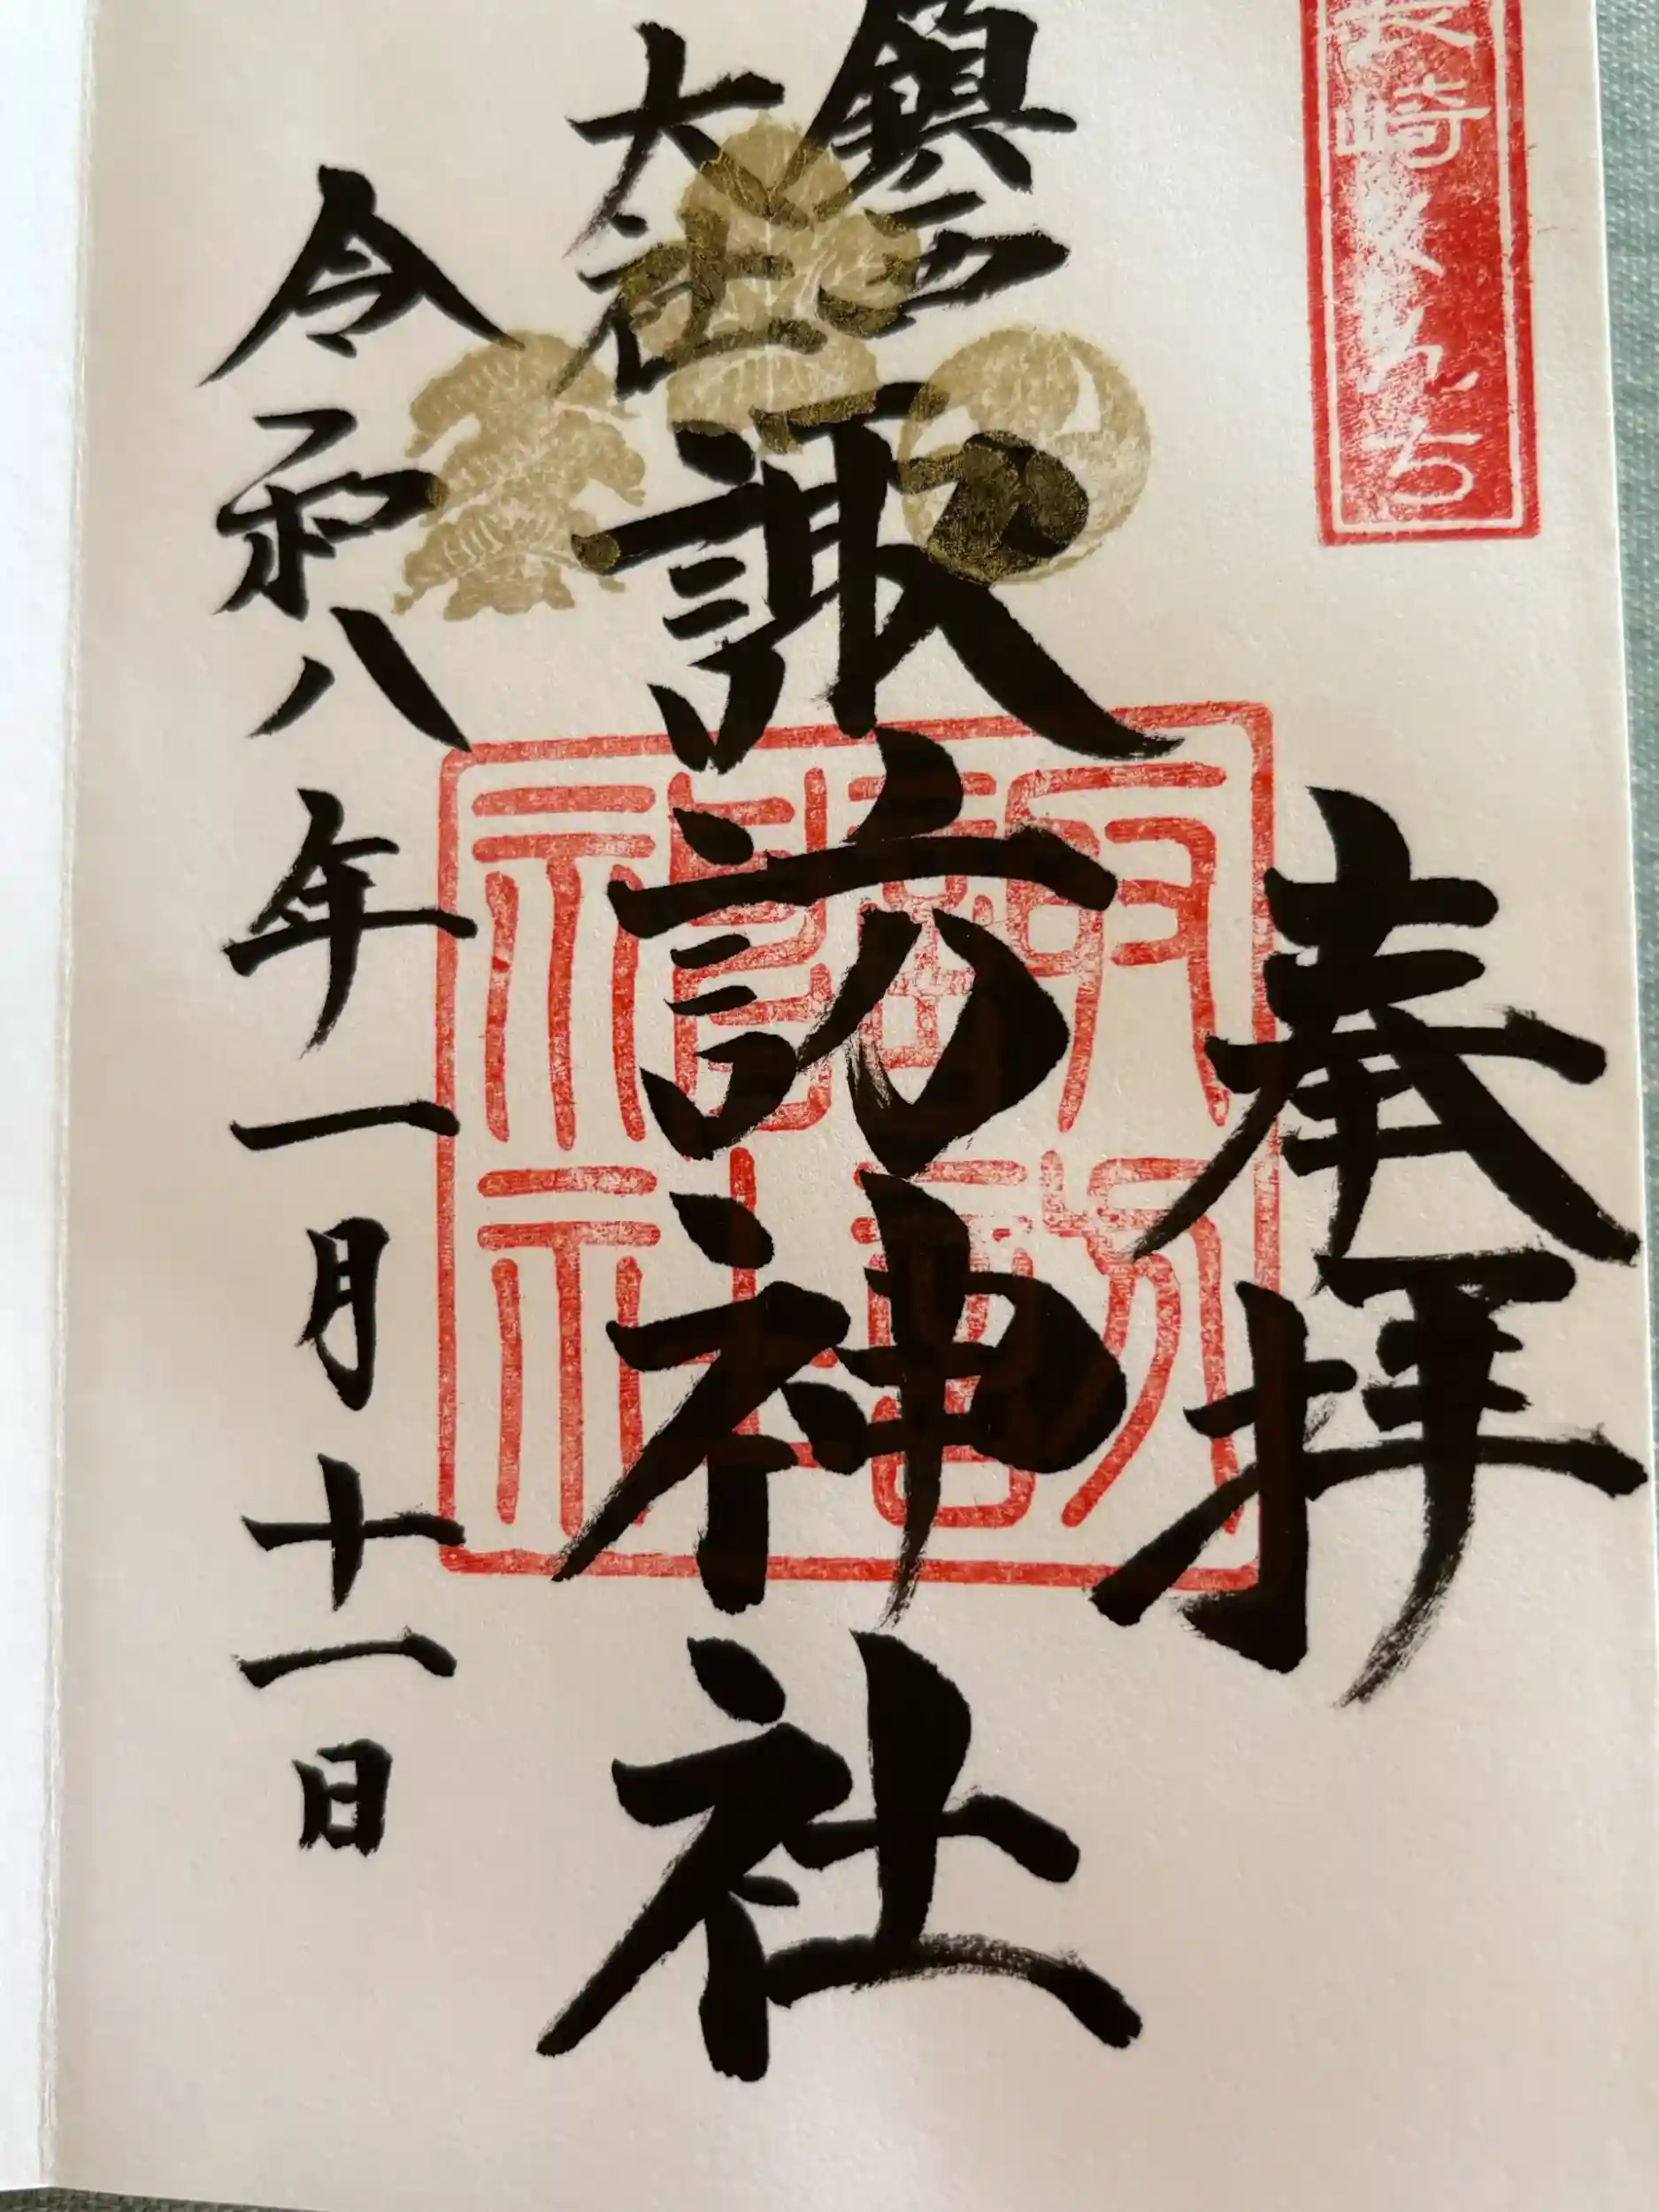 長崎くんち
奉拝
鎮西
大社
諏訪神社
諏訪神社
令和八年一月十一日